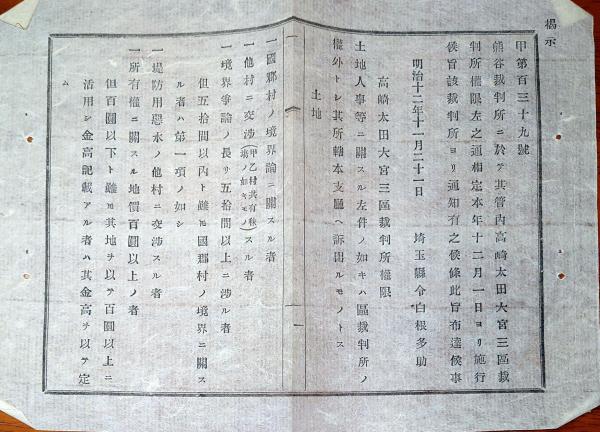 掲示
甲第百三十九號
熊谷裁判所ニ於テ其管内高崎太田大宮三區裁
判所權限左之通相定本年十二月一日ヨリ施行
候旨該裁判所ヨリ通知有之候條此旨布達候事
明治十二年十一月二十一日　埼玉縣令白根多助
高崎太田大宮三區裁判所權限
土地人事等ニ關スル左件ノ如キハ區裁判所ノ
權外トシ其所轄本支廳ヘ訴出ルモノトス
土地
一國郡村ノ境界論ニ關スル者
一他村ニ交渉(甲乙村共有秣場ノ如キモノ)スル者
一境界爭論ノ長サ五拾間以上ニ渉ル者
但五拾間以内ト雖モ國郡村ノ境界ニ關ス
ル者ハ第一項ノ如シ
一堤防用惡水ノ他村ニ交渉スル者
一所有權ニ關スル地價百圓以上ノ者
但百圓以下ト雖モ其地ヲ以テ百圓以上ニ
活用シ金高記載アル者ハ其金高ヲ以テ定
ム